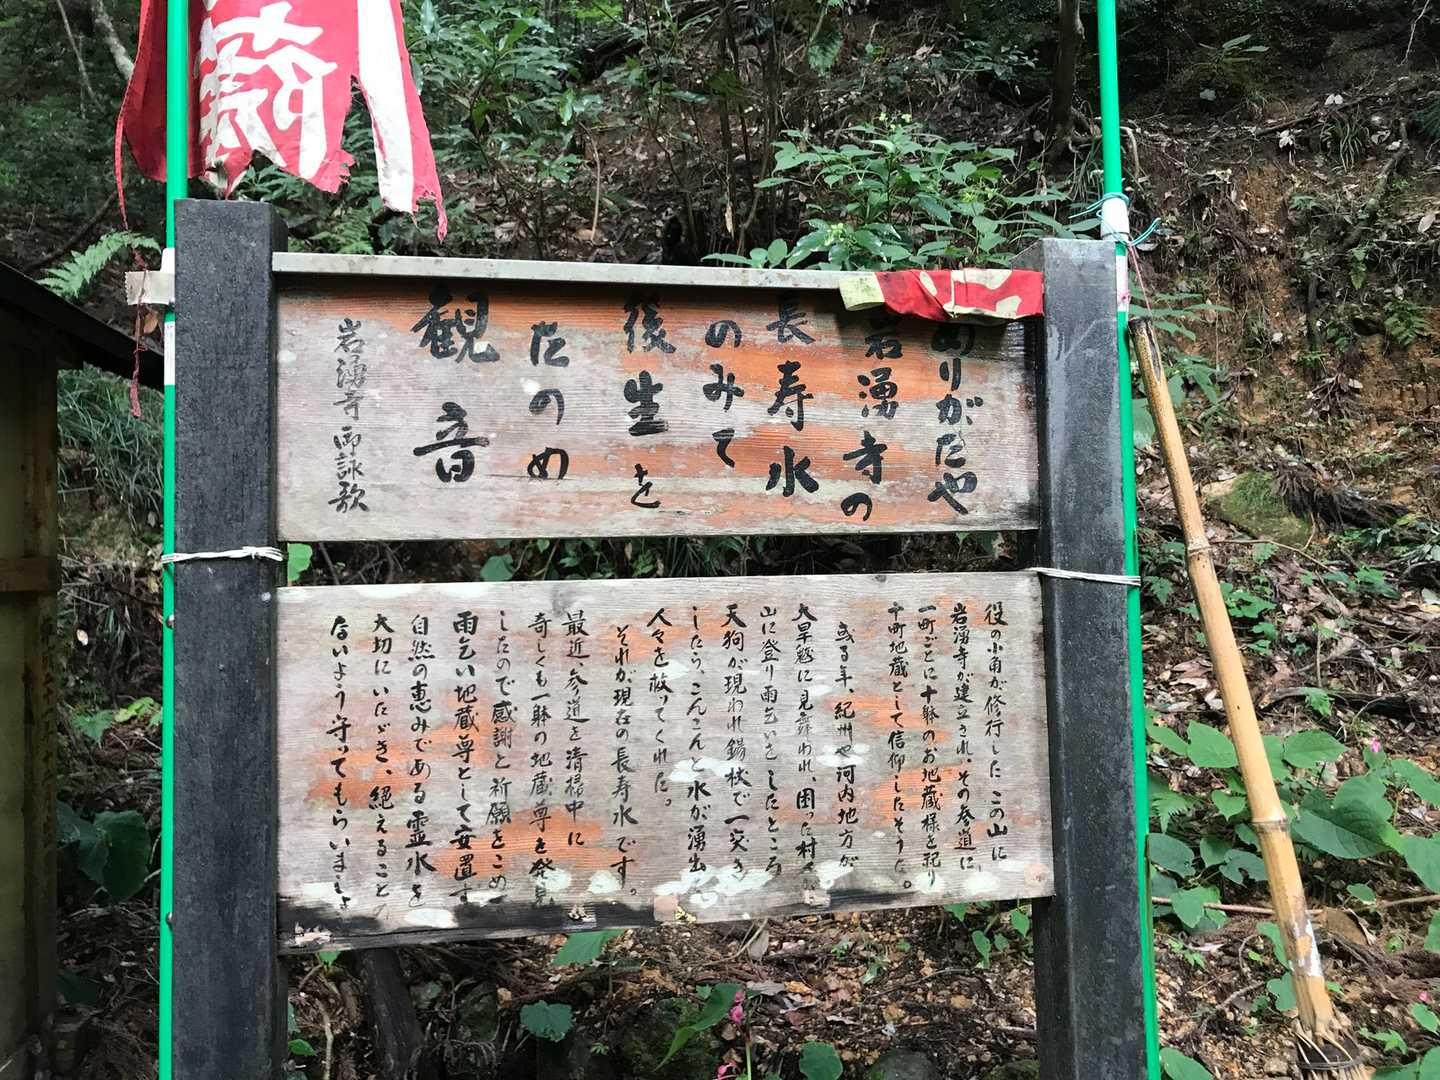 ありがたや
岩湧寺の
長寿水
のみて
後生を
たのめ
観音
岩湧寺御詠歌
役の小角が修行したこの山に
岩湧寺が建立され、その参道に
一町ごとに十躰のお地蔵様を祀り
十町地蔵として信仰したそうだ。
或る年、紀州や河内地方が
大旱魃に見舞われ、困った村
山に登り雨乞いをしたところ
天狗が現われ錫杖で一突き
したら、こんこんと水が湧出
人々を救ってくれた。
それが現在の長寿水です。
最近、参道を清掃中に
奇しくも一躰の地蔵尊を発見
したので感謝と祈願をこめ
雨乞い地蔵尊として安置す
自然の恵みである霊水を
大切にいただき、絶えること
ないよう守ってもらいましょ